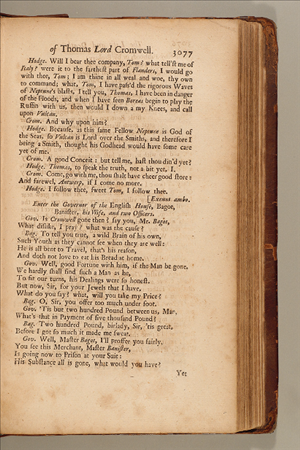 of Thomas Lord Cromwell. 3077
Hodge. Will I bear thee company, Tom? what tell'st me of
Italy? were it to the farthest part of Flanders, I would go
with thee, Tom; I am thine in all weal and woe, thy own
to command; what, Tom, I have pass'd the rigorous Waves
of Neptune's blasts, I tell you, Thomas, I have been in danger
of the Floods, and when I have seen Boreas begin to play the
Ruffin with us, then would I down a my Knees, and call
upon Vulcan.
Crom. And why upon him?
Hodge. Because, as this same Fellow Neptune is God of
the Seas, so Vulcan is Lord over the Smiths, and therefore I
being a Smith, thought his Godhead would have some care
yet of me.
Crom. A good Conceit: but tell me, hast thou din'd yet?
Hodge. Thomas, to speak the truth, not a bit yet, I.
Crom. Come, go with me, thou shalt have cheer good store:
And farewel, Antwerp, if I come no more.
Hodge. I follow thee, sweet Tom, I follow thee.
[Exeunt ambo.
Enter the Governor of the English House, Bagot,
Banister, his Wife, and two Officers.
Gov. Is Cromwell gone then? say you, Mr. Bagot,
What dislike, I pray? what was the cause?
Bag. To tell you true, a wild Brain of his own,
Such Youth as they cannot see when they are well:
He is all bent to Travel, that's his reason,
And doth not love to eat his Bread at home.
Gov. Well, good Fortune with him, if the Man be gone.
We hardly shall find such a Man as he,
To fit our turns, his Dealings were so honest.
But now, Sir, for your Jewels that I have,
What do you say? what, will you take my Price?
Bag. O, Sir, you offer too much under foot.
Gov. 'Tis but two hundred Pound between us, Man,
What's that in Payment of five thousand Pound?
Bag. Two hundred Pound, birlady, Sir, 'tis great,
Before I got so much it made me sweat.
Gov. Well, Master Bagot, I'll proffer you fairly,
You see this Merchant, Master Banister,
Is going now to Prison at your Suit:
His Substance all is gone, what would you have?
Yet